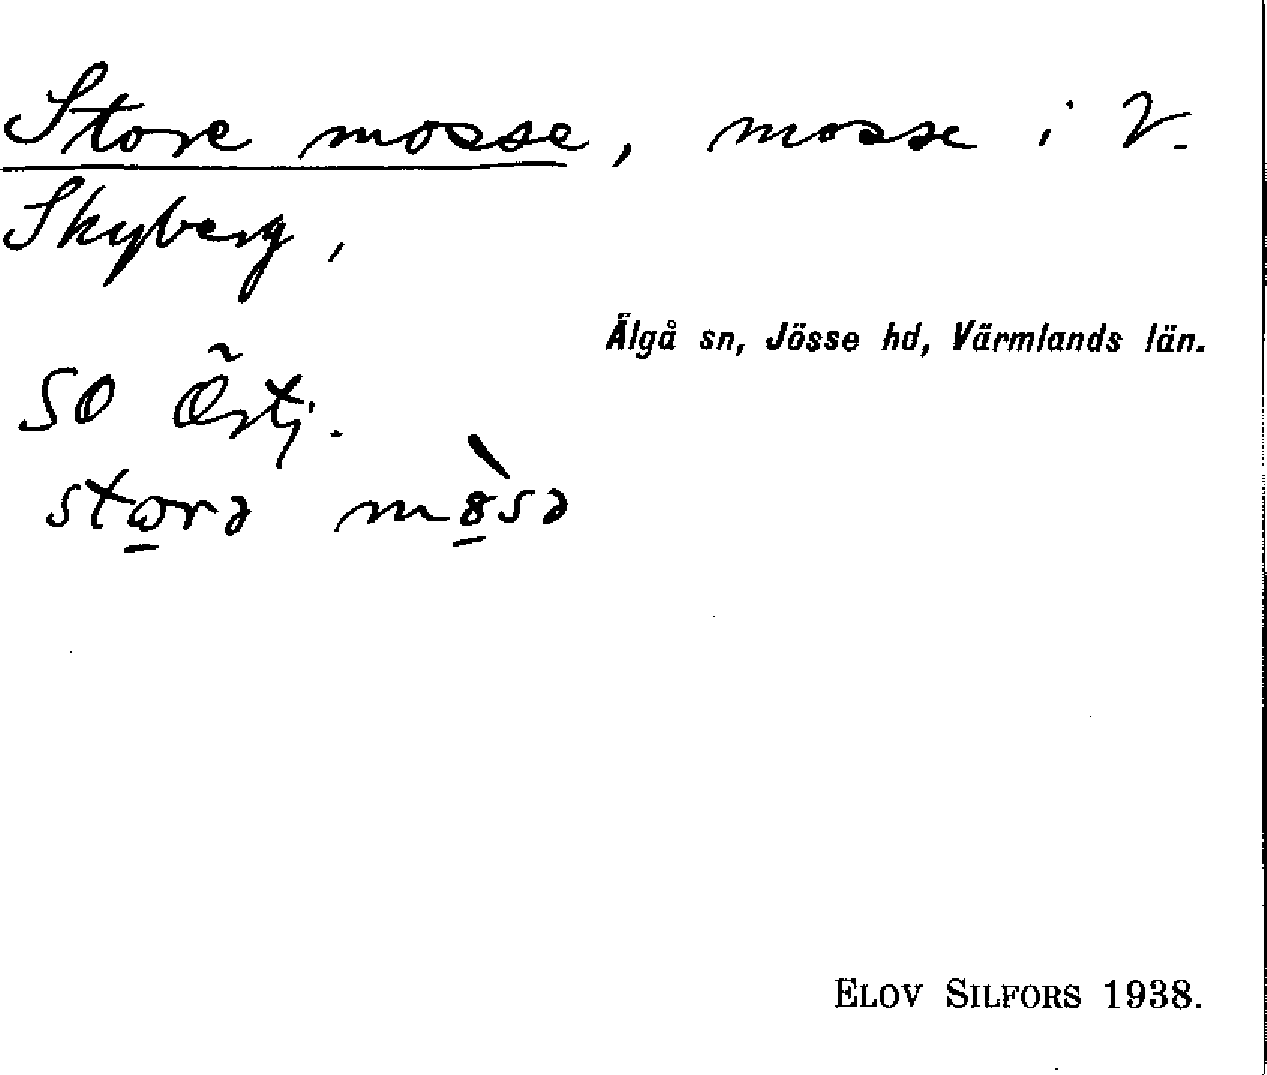 Store mosse, mosse i V.
Skyberg,
Älgå sn, Jösse hd, Värmlands län.
SO Östj.
storə mòsə
ELOV SILFORS 1938.